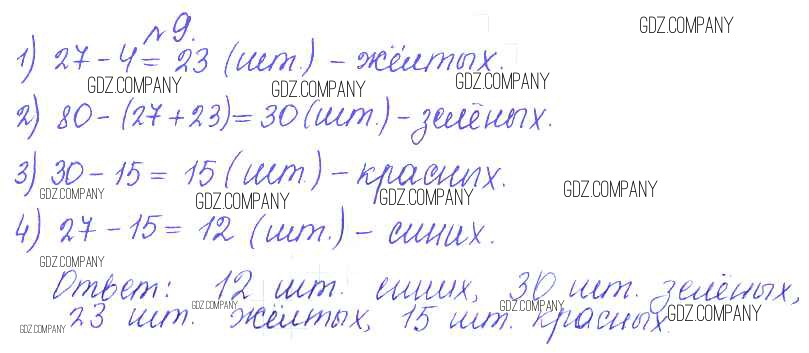 GDZ.COMPANY
№ 9.
1) 27 - 4 = 23 (шт.) - жёлтых.
GDZ.COMPANY GDZ.COMPANY GDZ.COMPANY
2) 80 - (27 + 23) = 30 (шт.) - зелёных.
3) 30 - 15 = 15 (шт.) - красных.
GDZ.COMPANY GDZ.COMPANY GDZ.COMPANY GDZ.COMPANY
4) 27 - 15 = 12 (шт.) - синих.
GDZ.COMPANY
Ответ: 12 шт. синих, 30 шт. зелёных,
GDZ.COMPANY GDZ.COMPANY GDZ.COMPANY
23 шт. жёлтых, 15 шт. красных
GDZ.COMPANY